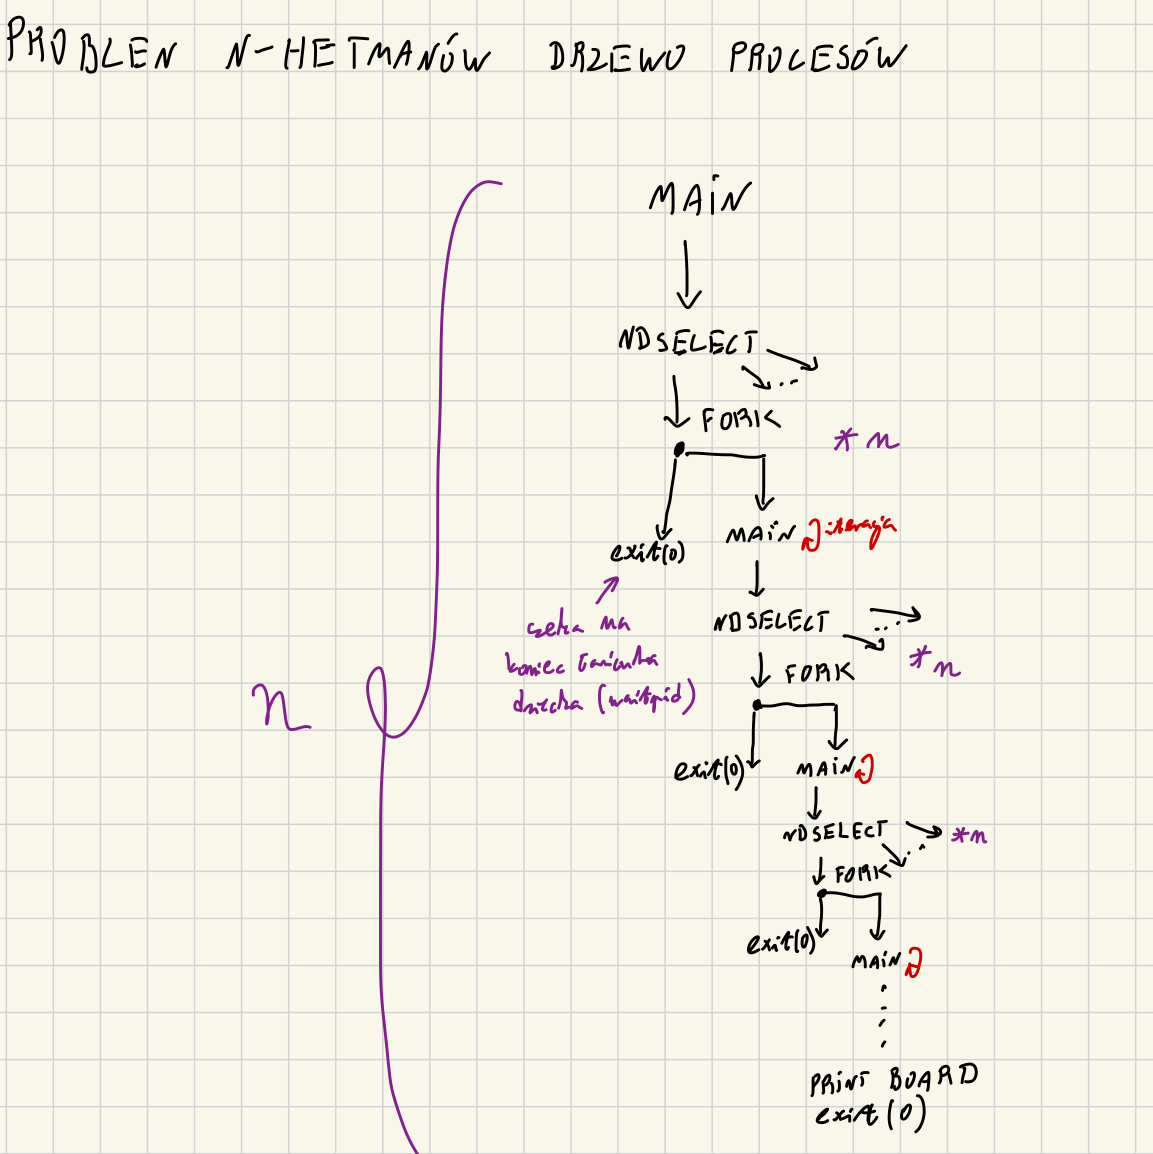 PROBLEN N-HETMANÓW DRZEWO PROCESÓW
MAIN
NDSELECT
...
FORK
* n
exit(0)
MAIN iteracja
czeka na
koniec
dziecka (waitpid)
NDSELECT
...
* n
FORK
n
exit(0)
MAIN
NDSELECT
...
* n
FORK
exit(0)
MAIN
PRINT BOARD
exit(0)